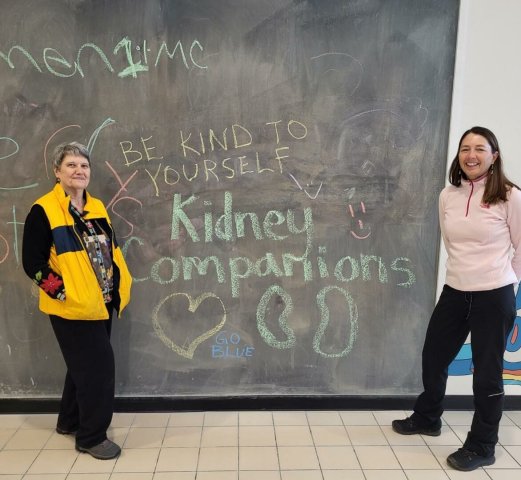 men 1:1 MC
BE KIND TO
YOURSELF
Kidney
Companions
GO
BLUE